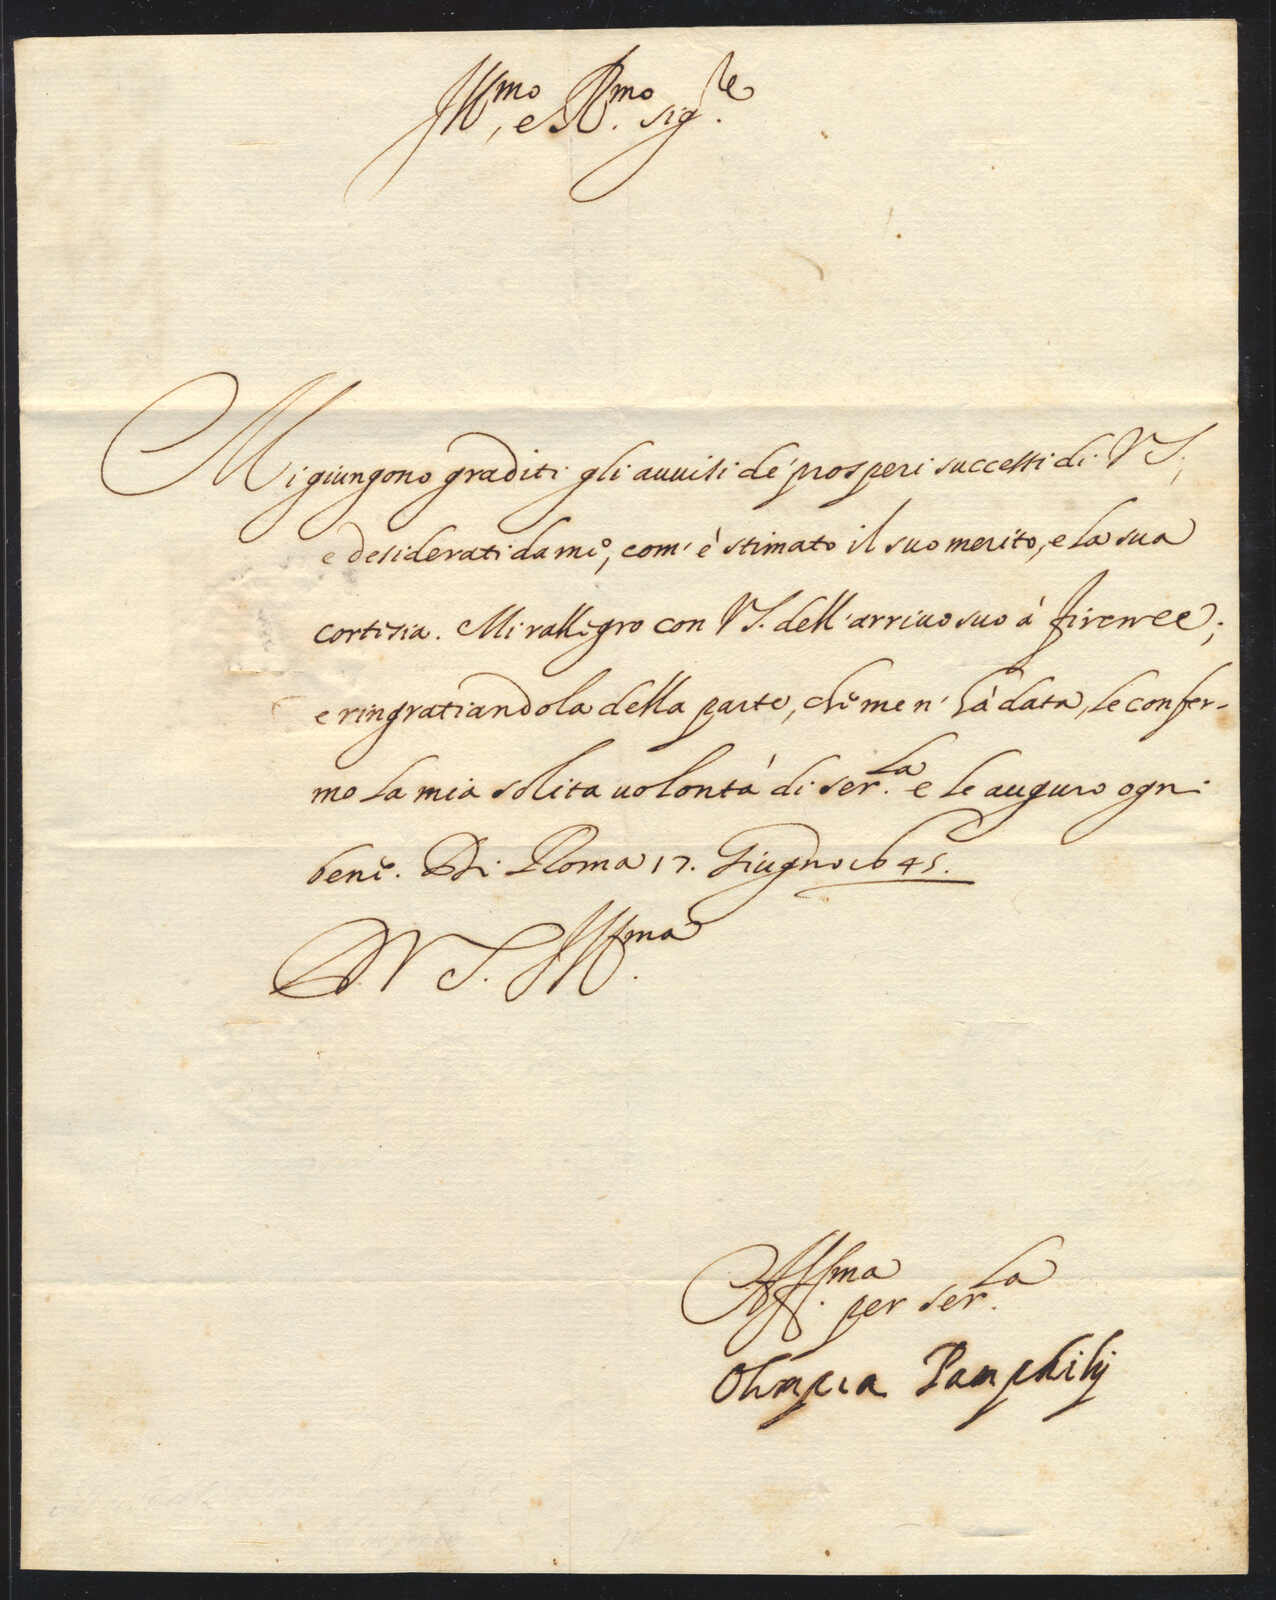 Ill.mo e R.mo Sig.re
Mi giungono graditi gli auuisi de' prosperi successi di V S.,
e desiderati da me, com' è stimato il suo merito, e la sua
cortesia. Mi rallegro con V S. dell' arriuo suo à Firenze;
e ringratiandola della parte, che me n' hà data, le confer-
mo la mia solita uolontà di ser.la e le auguro ogni
bene. Di Roma 17. Giugno 1645.
D. V S. Ill.ma
Aff.ma per ser.la
Olimpia Pamphilij